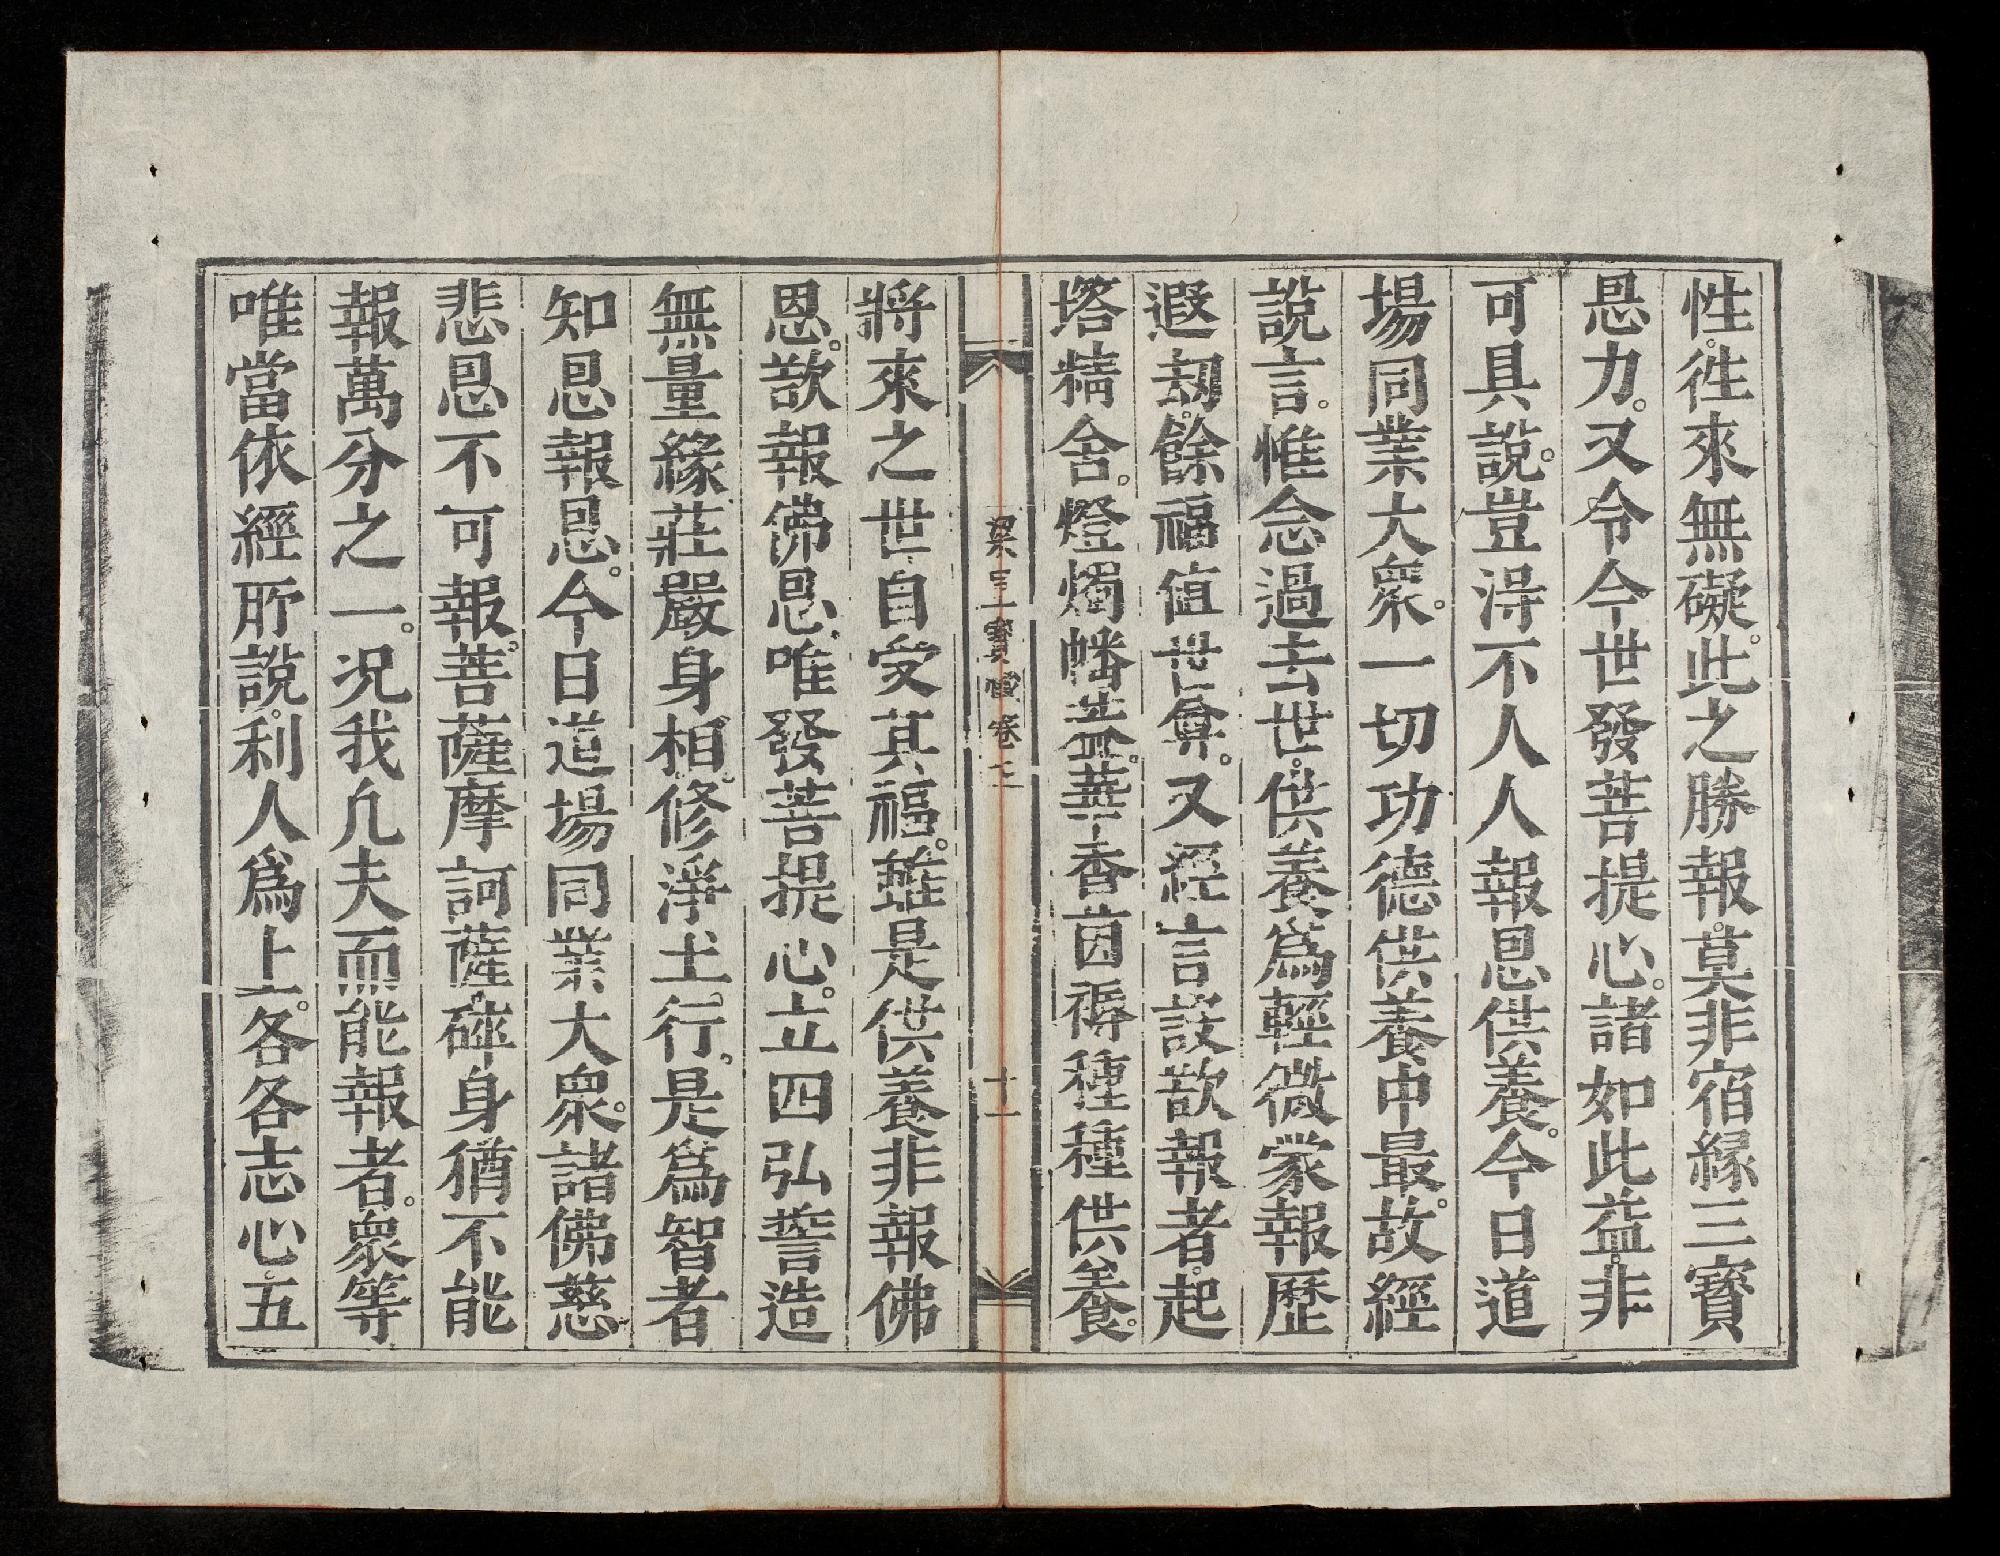 性。徃來無礙。此之勝報。莫非宿緣三寶
恩力。又令今世發菩提心。諸如此益。非
可具說。豈得不人人報恩供養。今日道
場同業大衆。一切功德供養中最。故經
說言。惟念過去世。供養爲輕微蒙報歷
遐劫。餘福值世尊。又經言設欲報者。起
塔精舍。燈燭幡蓋。華香茵褥種種供養。
梁皇寶懺卷十一
將來之世自受其福。雖是供養非報佛
恩。欲報佛恩。唯發菩提心。立四弘誓造
無量緣莊嚴身相。修淨土行。是爲智者
知恩報恩。今日道場同業大衆。諸佛慈
悲恩不可報。菩薩摩訶薩碎身猶不能
報萬分之一。況我凡夫而能報者。衆等
唯當依經所說。利人爲上。各各志心。五